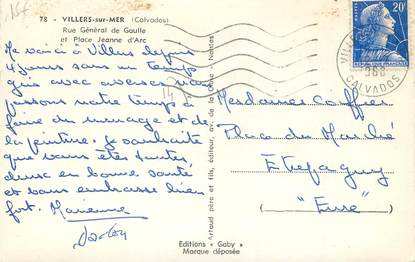 78 - VILLERS-sur-MER (Calvados)
Rue Général de Gaulle
et Place Jeanne d'Arc
Me voici à Villers depuis
4 jours sans un temps
gris avec averses. Nous
passons notre temps à
faire du ménage et de
la peinture. Je souhaite
que vous êtes toutes
deux en bonne santé
et vous embrasse bien
fort. Marienne
Mesdames
Place du Marché
Etrepagny
"Eure"
Artaud père et fils, éditeurs, Nantes
Editions "Gaby"
Marque déposée
20F
CALVADOS